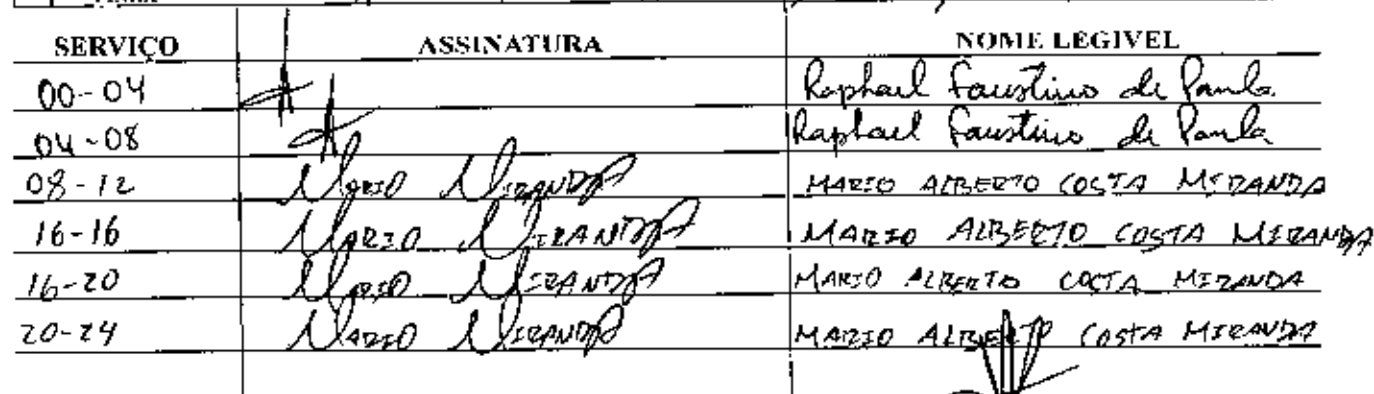 SERVIÇO ASSINATURA NOME LEGIVEL
00-04 Raphael Faustino de Paula
04-08 Raphael Faustino de Paula
08-12 MARIO MIRANDA MARIO ALBERTO COSTA MIRANDA
16-16 MARIO MIRANDA MARIO ALBERTO COSTA MIRANDA
16-20 MARIO MIRANDA MARIO ALBERTO COSTA MIRANDA
20-24 MARIO MIRANDA MARIO ALBERTO COSTA MIRANDA